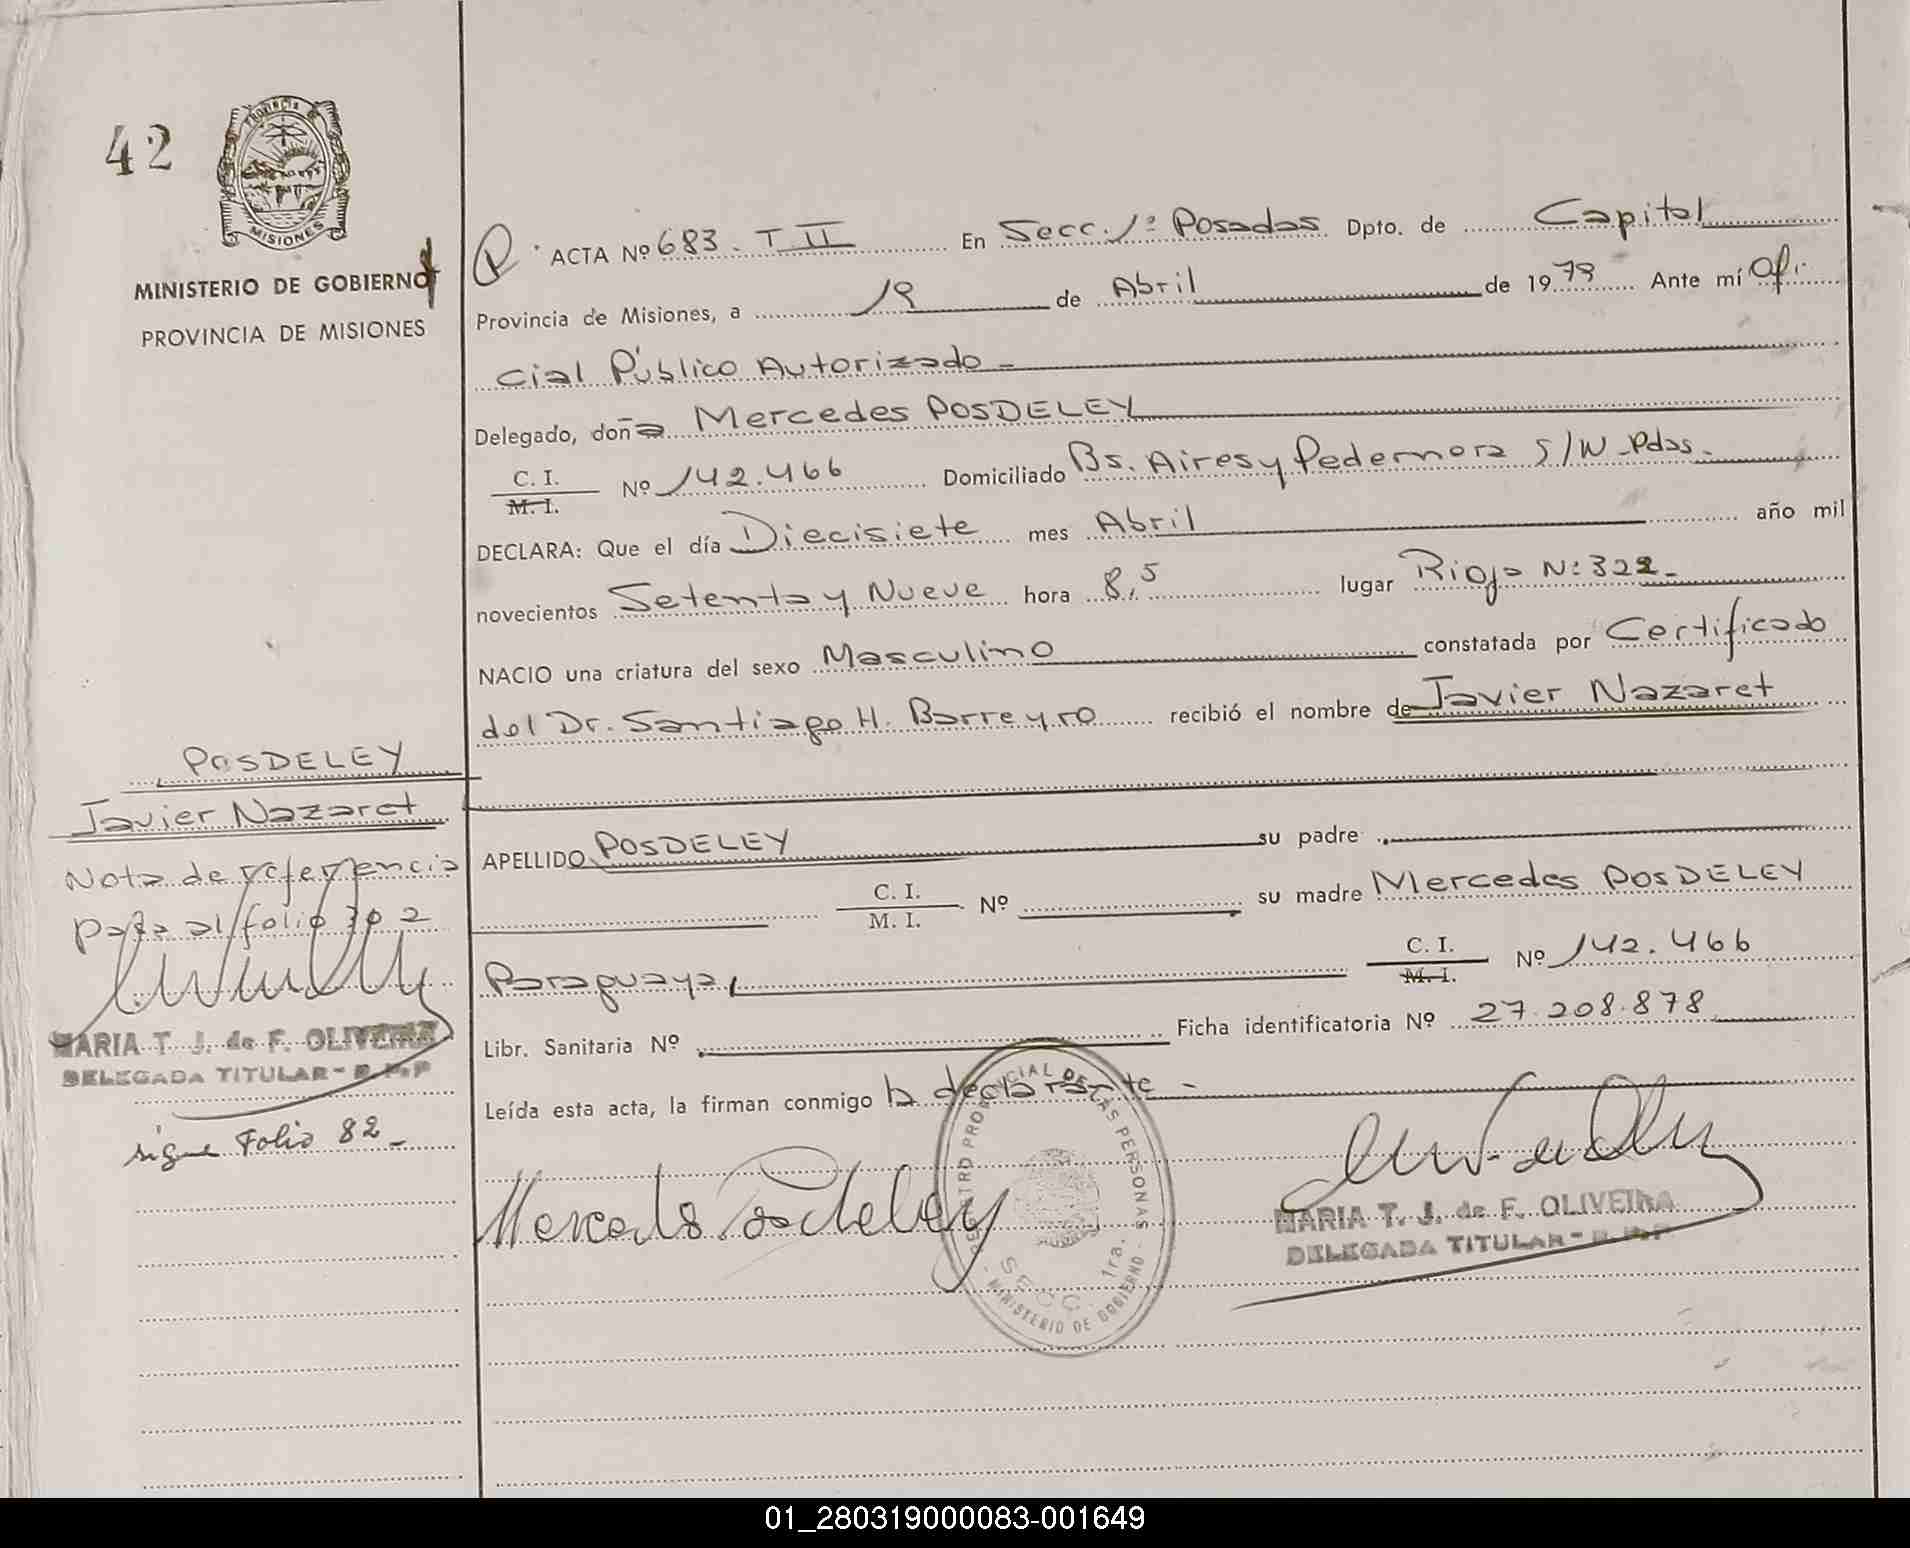 42
PROVINCIA
MISIONES
MINISTERIO DE GOBIERNO
PROVINCIA DE MISIONES
ACTA Nº 683. T II En Secc. 1ª Posadas Dpto. de Capital
Provincia de Misiones, a 19 de Abril de 1979 Ante mí Ofi-
cial Público Autorizado -
Delegado, doña Mercedes POSDELEY
C. I.
M. I. Nº 142.466 Domiciliado Bs. Aires y Pedernera S/N - Pdas.
DECLARA: Que el día Diecisiete mes Abril año mil
novecientos Setenta y Nueve hora 8,5 lugar Rioja Nº 322 -
NACIO una criatura del sexo Masculino constatada por Certificado
del Dr. Santiago H. Barreyro recibió el nombre de Javier Nazaret
POSDELEY
Javier Nazaret
Nota de referencia
pasa al folio 302
MARIA T. J. de F. OLIVEIRA
DELEGADA TITULAR - R. P. P
sigue Folio 82 -
APELLIDO POSDELEY su padre
C. I.
M. I. Nº su madre Mercedes POSDELEY
Paraguaya, C. I.
M. I. Nº 142.466
Libr. Sanitaria Nº Ficha identificatoria Nº 27.208.878
Leída esta acta, la firman conmigo la declarante -
Mercedes Posdeley
REGISTRO PROVINCIAL DE LAS PERSONAS
SECC. 1ra.
- MINISTERIO DE GOBIERNO -
MARIA T. J. de F. OLIVEIRA
DELEGADA TITULAR - R. P. P
01_280319000083-001649